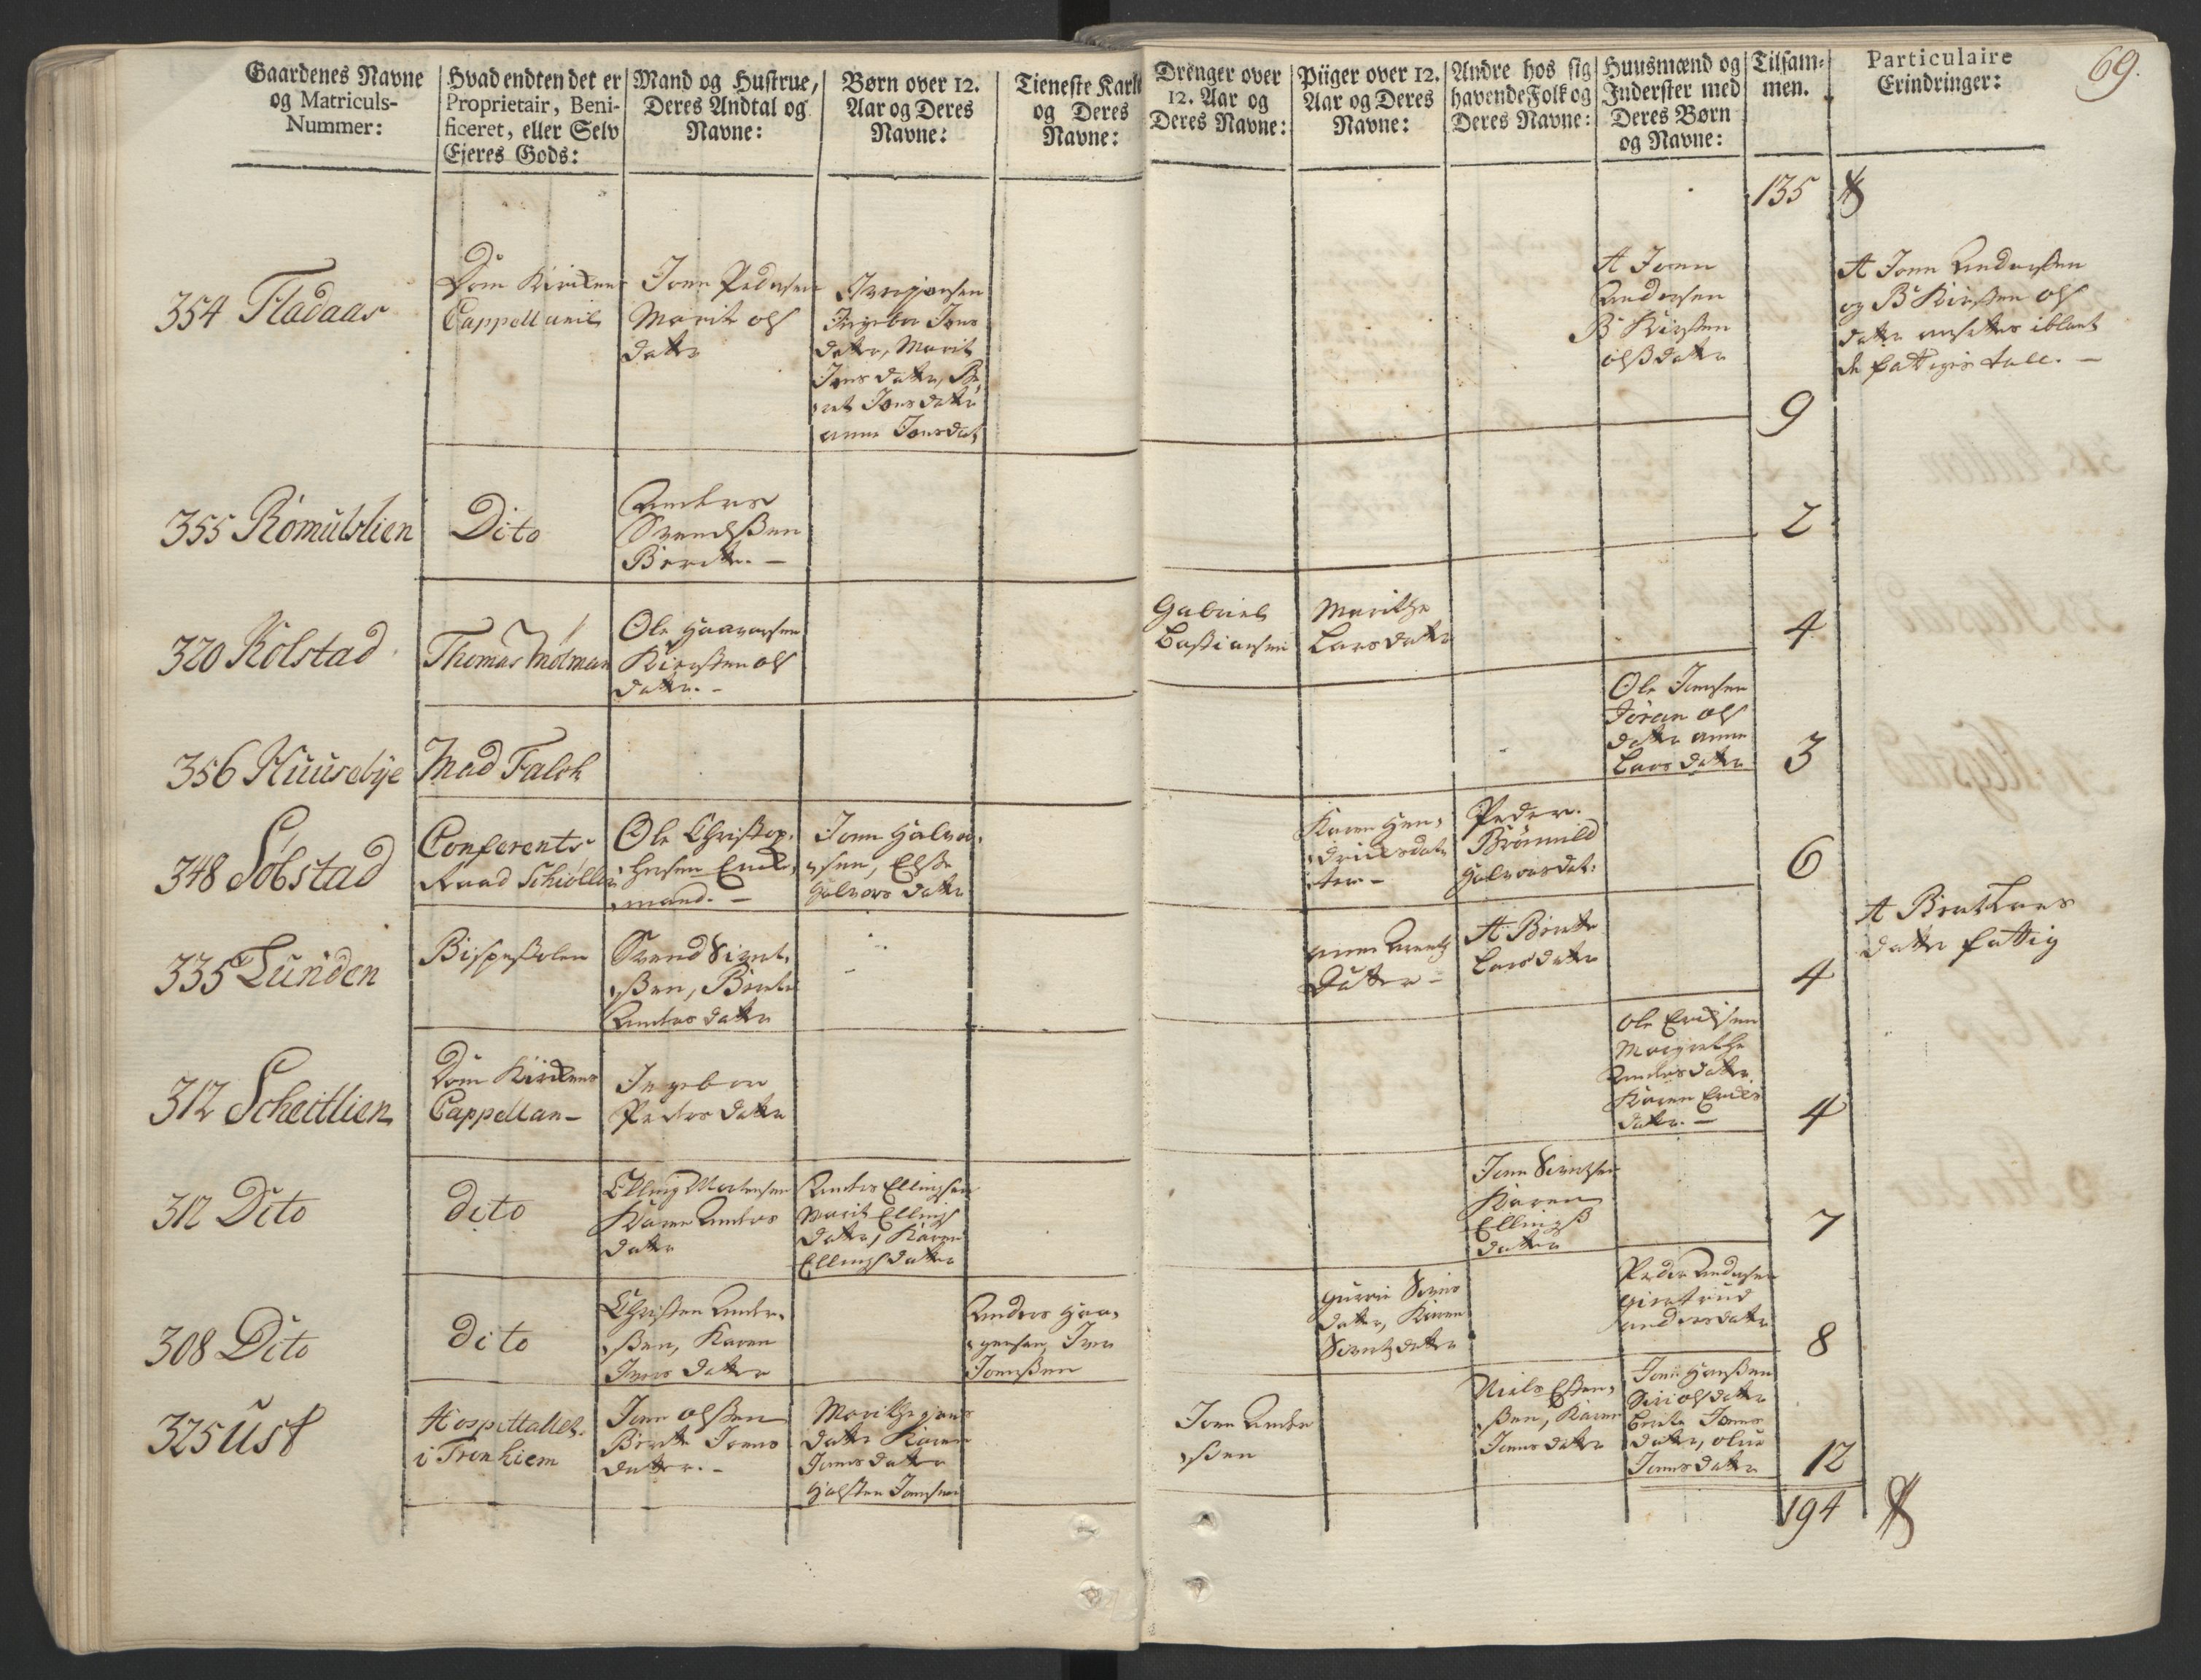 Gaardenes Navne
og Matriculs-
Nummer:
Hvad endten det er
Proprietair, Beni-
ficeret, eller Selv
Ejeres Gods:
Mand og Hustrue,
Deres Andtal og
Navne:
Børn over 12.
Aar og Deres
Navne:
Tieneste Karle
og Deres
Navne:
Drenger over
12. Aar og
Deres Navne:
Piiger over 12.
Aar og Deres
Navne:
Andre hos sig
havende Folk og
Deres Navne:
Huusmænd og
Inderster med
Deres Børn
og Navne:
Tilsam-
men.
Particulaire
Erindringer:
69.
135
354 Fladaas
Dom Kirckens
Cappellanie
Jonn Pedersen
Marit ols
datter
Ingebor Jons
datter, Marit
Jons datter, Be,
ret Jonsdatter
anne Jonsdat
A Jonn
Andersen
B Kirsten
olsdatter
9
A Jonn Andersen
og B Kirsten ols
datter ansettes iblant
de fattiges tall. –
355 Romulslien
Dito
Anders
Svendsen
Berette. –
2
320 Kolstad
Thomas Molman
Ole Haavorsen
Kiersten ols
datter. –
Gabriel
Bastiansen
Marithe
Larsdatter
4
356 Huusebye
Mad Falch
Ole Jonsen
Joran ols
datter anne
Lars datter
3
348 Sobstad
Conferents
Raad Schiøller
Ole Christop,
hersen Enck,
mand. –
Jonn Halvor,
sen, Else
Halvors datter
Karen Hen,
dricksdat
ter –
Peder
Bromuld
Halvorsdat:
6
335 Lunden
Bispestolen
Svend Sivert,
sen, Berete
Anders datter
anne Arentz
Datter –
A Berete
Larsdatter
4
A Beret Lars
datter fattig
312 Scheitlien
Dom Kirckens
Cappellan –
Ingebor
Peders datter
Ole Ericksen
Margrethe
Anders datter
Karen Ericks
datter. –
4
312 Dito
dito
Elling Mortensen
Karen Anders
datter
Anders Ellingsen
Marit Ellings
datter, Karen
Ellingsdatter
Jonn Sivertsen
Karen
Ellings
datter
7
308 Dito
dito
Christen Ander,
sen, Karen
Ivers datter
Anders Haa,
gensen, Iver
Jonnsen
Gurrie Sivers
datter, Karen
Sivertzdatter
Peder Andersen
Giertrud
andersdatter
8
325 Ust
Hospittallet
i Tronhiem
Jonn olsen
Berete Jonns
datter. –
Marithe Jons
datter Karen
Jonnsdatter
Halsten Jonnsen
Jonn Ander
sen
Niels Esten,
sen, Karen
Jonns datter
Jonn Hansen
Siri olsdatter
Berete Jonns
datter, oline
Jonnsdatter
12
194